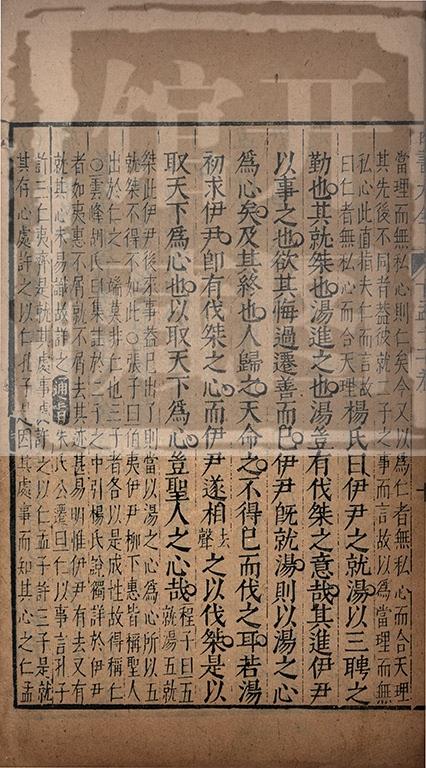 當理而無私心則仁矣今又以為仁者無私心而合天理
其先後不同者葢彼就二子之事而言故以為當理而無
私心此直指夫仁而言故
曰仁者無私心而合天理
楊氏曰伊尹之就湯以三聘之
勤也其就桀也湯進之也湯豈有伐桀之意哉其進伊尹
以事之也欲其悔過遷善而已伊尹旣就湯則以湯之心
為心矣及其終也人歸之天命之不得已而伐之耳若湯
初求伊尹卽有伐桀之心而伊尹遂相去聲之以伐桀是以
取天下為心也以取天下為心豈聖人之心哉
程子曰五
就湯五就
桀此伊尹後來事葢已出了則當以湯之心為心所以五
就桀不得不如此○張子曰伯夷伊尹柳下惠皆稱聖人
出於仁之一端莫非仁也三子者各以是成性故得稱仁
○雲峰胡氏曰集註於三子之中引楊氏說獨詳於伊尹
者如夷惠不屑就不屑去其迹甚易明惟伊尹有去又有
就其心未易識故詳之通旨朱氏公遷曰仁以事言孔子
許三仁夷齊是就其處事處許之以仁孟子許三子是就
其有心處許之以仁孔子是因其處事而知其心之仁孟